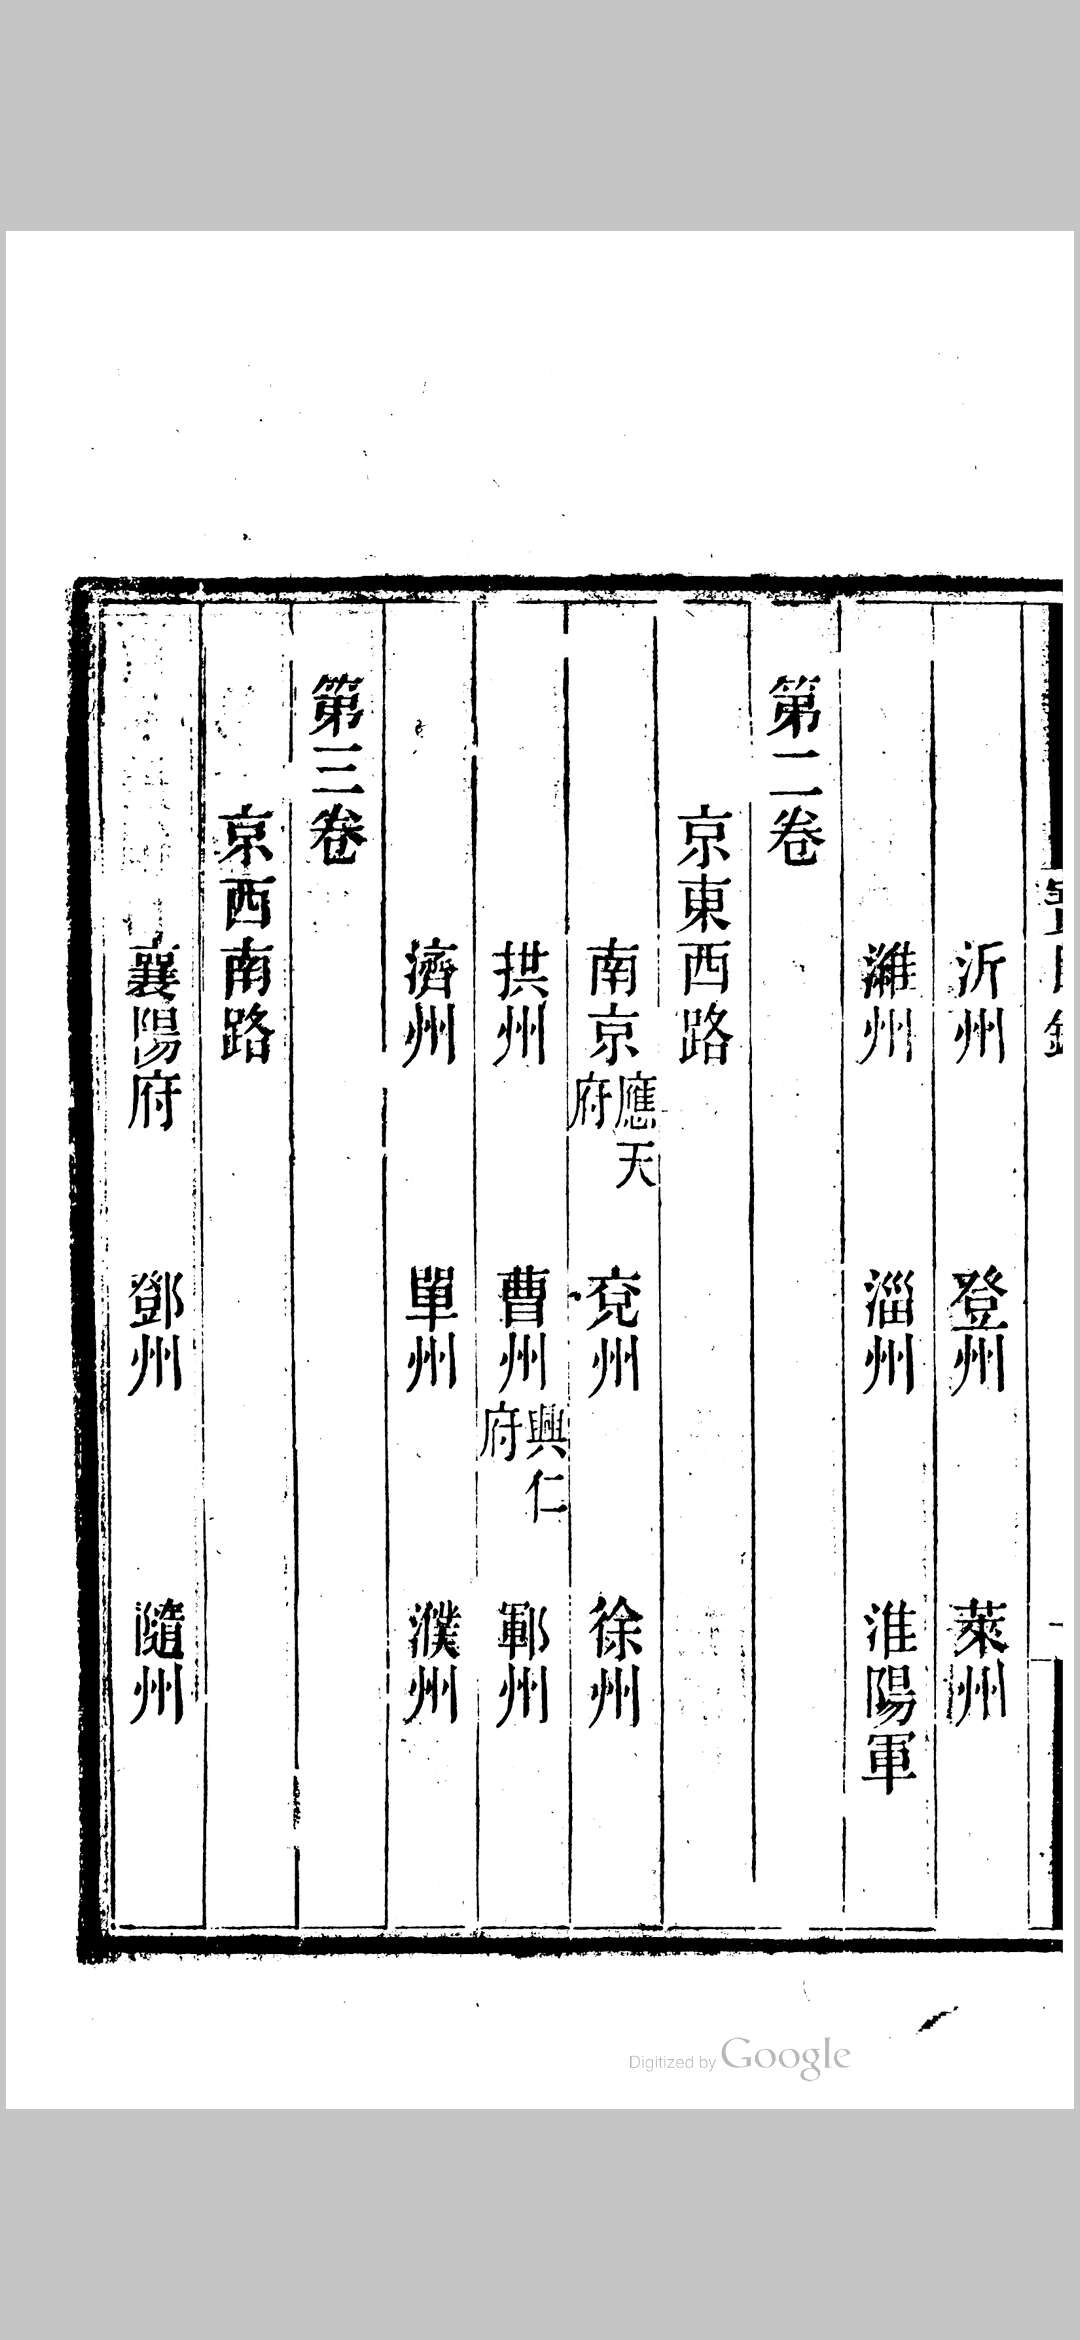 沂州　登州　萊州
濰州　淄州　淮陽軍
第二卷
京東西路
南京應天府　兗州　徐州
拱州　曹州興仁府　鄆州
濟州　單州　濮州
第三卷
京西南路
襄陽府　鄧州　隨州
Digitized by Google